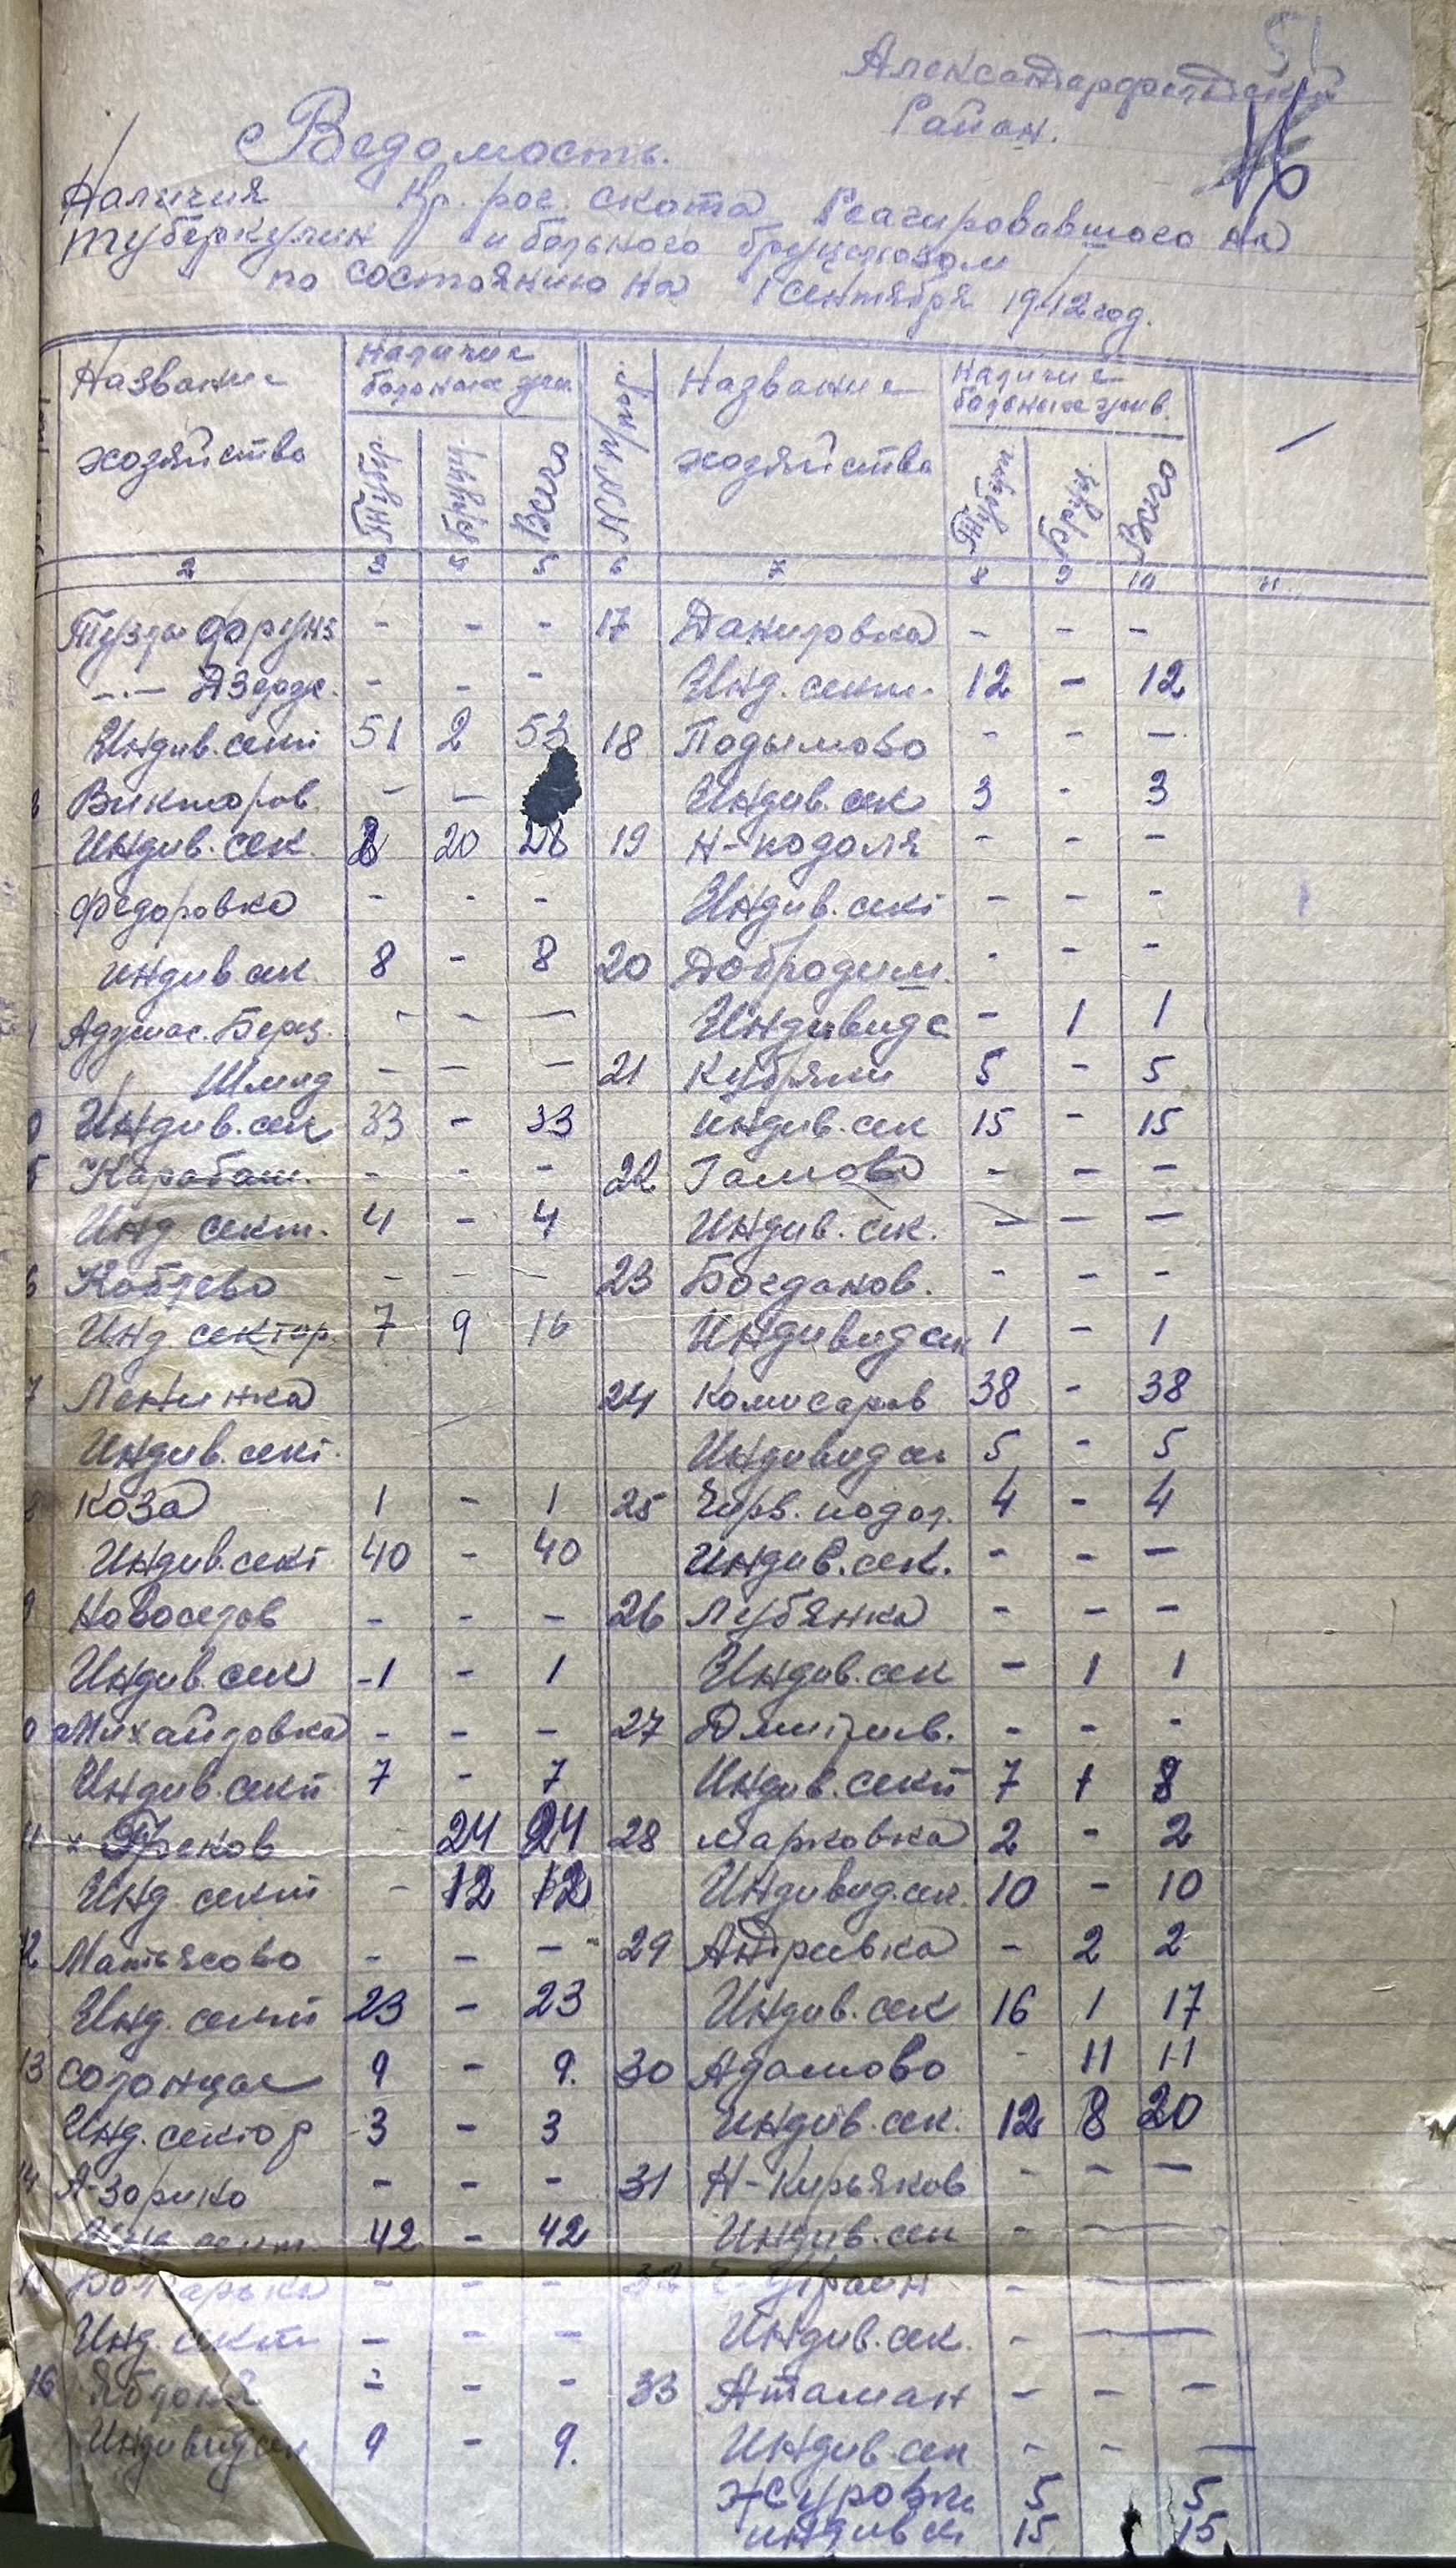 51
Александерфельдский
Район.
Ведомость.
Наличия Кр. рог. скота Реагировавшего на
туберкулин и больного бруцелозом
по состоянию на 1 Сентября 1942 год.
Название хозяйства | Наличие больных жив. | №№ п/пор. | Название хозяйства | Наличие больных жив.
Туберк | Бруцел. | Всего | Туберк | Бруц. | Всего
2 3 4 5 6 7 8 9 10 11
Тузлы Фрунз - - - 17 Даниловка - - -
-"- Азсрдж. - - - Инд. сект. 12 - 12
Индив. сект 51 2 53 18 Подымово - - -
Виктъоров. - - Индив. сек 3 - 3
Индив. сек. 8 20 28 19 Н-подоля - - -
Федоровка - - - Индив. сект - - -
индив сек. 8 - 8 20 Доброджи. - - -
Аджиас. Берез. - - - Индивид с - 1 1
" Шмид - - - 21 Кубряки 5 - 5
Индив. сек 33 - 33 индив. сек 15 - 15
5 Карабаш. - - - 22 Гамово - - -
Инд сект. 4 - 4 Индив. сек. - - -
6 Коблево - - - 23 Богданов. - - -
Инд. сектор. 7 9 16 Индивид сек 1 - 1
7 Ленинка 24 Комисаров 38 - 38
Индив. сект. Индивид се 5 - 5
8 Коза 1 - 1 25 Черв. подол. 4 - 4
Индив. секτ 40 - 40 Индив. сек. - - -
9 Новоселов - - - 26 Лубянка - - -
Индив. сек -1 - 1 Индив. сек - 1 1
0 Михайловка - - - 27 Дмитрив. - - -
Индив. сект 7 - 7 Индив. сект 7 1 8
11 х Греков 24 24 28 Марковка 2 - 2
Инд. сект - 12 12 Индивид. сек. 10 - 10
12 Матьясово - - - 29 Андривка - 2 2
Инд. сект 23 - 23 Индив. сек 16 1 17
13 Солонцах 9 - 9. 30 Адамово - 11 11
Инд. сектор 3 - 3 Индив. сек. 12 8 20
14 А-зорико - - - 31 Н-Кирьяков - - -
Инд. сект. 42 - 42 Индив. сек - -
15 Болгарька - - - 32 Ч-Украин - -
Инд. сект - - - Индив. сек. - -
16 Яблоня - - - 33 Атаман - - -
Индивид сек 9 - 9. Индив. сек - - -
Журовки 5 5
индив сек 15 15